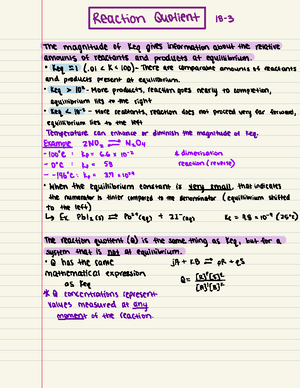 Reaction Quotient 18-3
The magnitude of Keq gives information about the relative
amounts of reactants and products at equilibrium.
• Keq ≈ 1 (.01 < K < 100) - There are comparable amounts of reactants
and products present at equilibrium.
- More products, reaction goes nearly to completion,
equilibrium lies to the right
- More reactants, reaction does not proceed very far forward,
equilibrium lies to the left
Temperature can enhance or diminish the magnitude of Keq.
Example 2NO₂ ⇌ N₂O₄
-100°C : Kp = 6.6 x 10⁻² % dimerization
- 0°C : Kp = 58 reaction (reverse)
• When the equilibrium constant is very small, that indicates
the numerator is tinier compared to the denominator (equilibrium shifted
to the left)
↳ Ex. PbI₂(s) ⇌ Pb²⁺(aq) + 2I⁻(aq)
The reaction quotient (Q) is the same thing as Keq, but for a
system that is not at equilibrium.
• Q has the same
mathematical expression
as Keq
* Q concentrations represent
values measured at any
moment of the reaction.
jA + kB ⇌ pR + qS